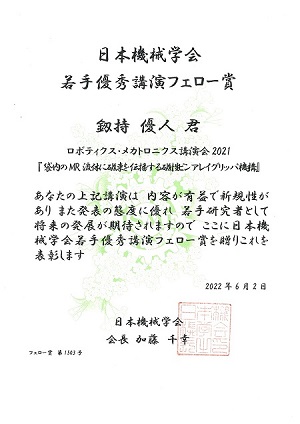 日本機械学会
若手優秀講演フェロー賞
釼持 優人 君
ロボティクス・メカトロニクス講演会2021
『袋内のMR流体に磁束を伝播する磁性ピンアレイグリッパ機構』
あなたの上記講演は 内容が有益で新規性が
あり また発表の態度に優れ 若手研究者として
将来の発展が期待されますので ここに日本機
械学会若手優秀講演フェロー賞を贈りこれを
表彰します
2022年6月2日
日本機械学会
会長 加藤 千幸
フェロー賞 第1503号